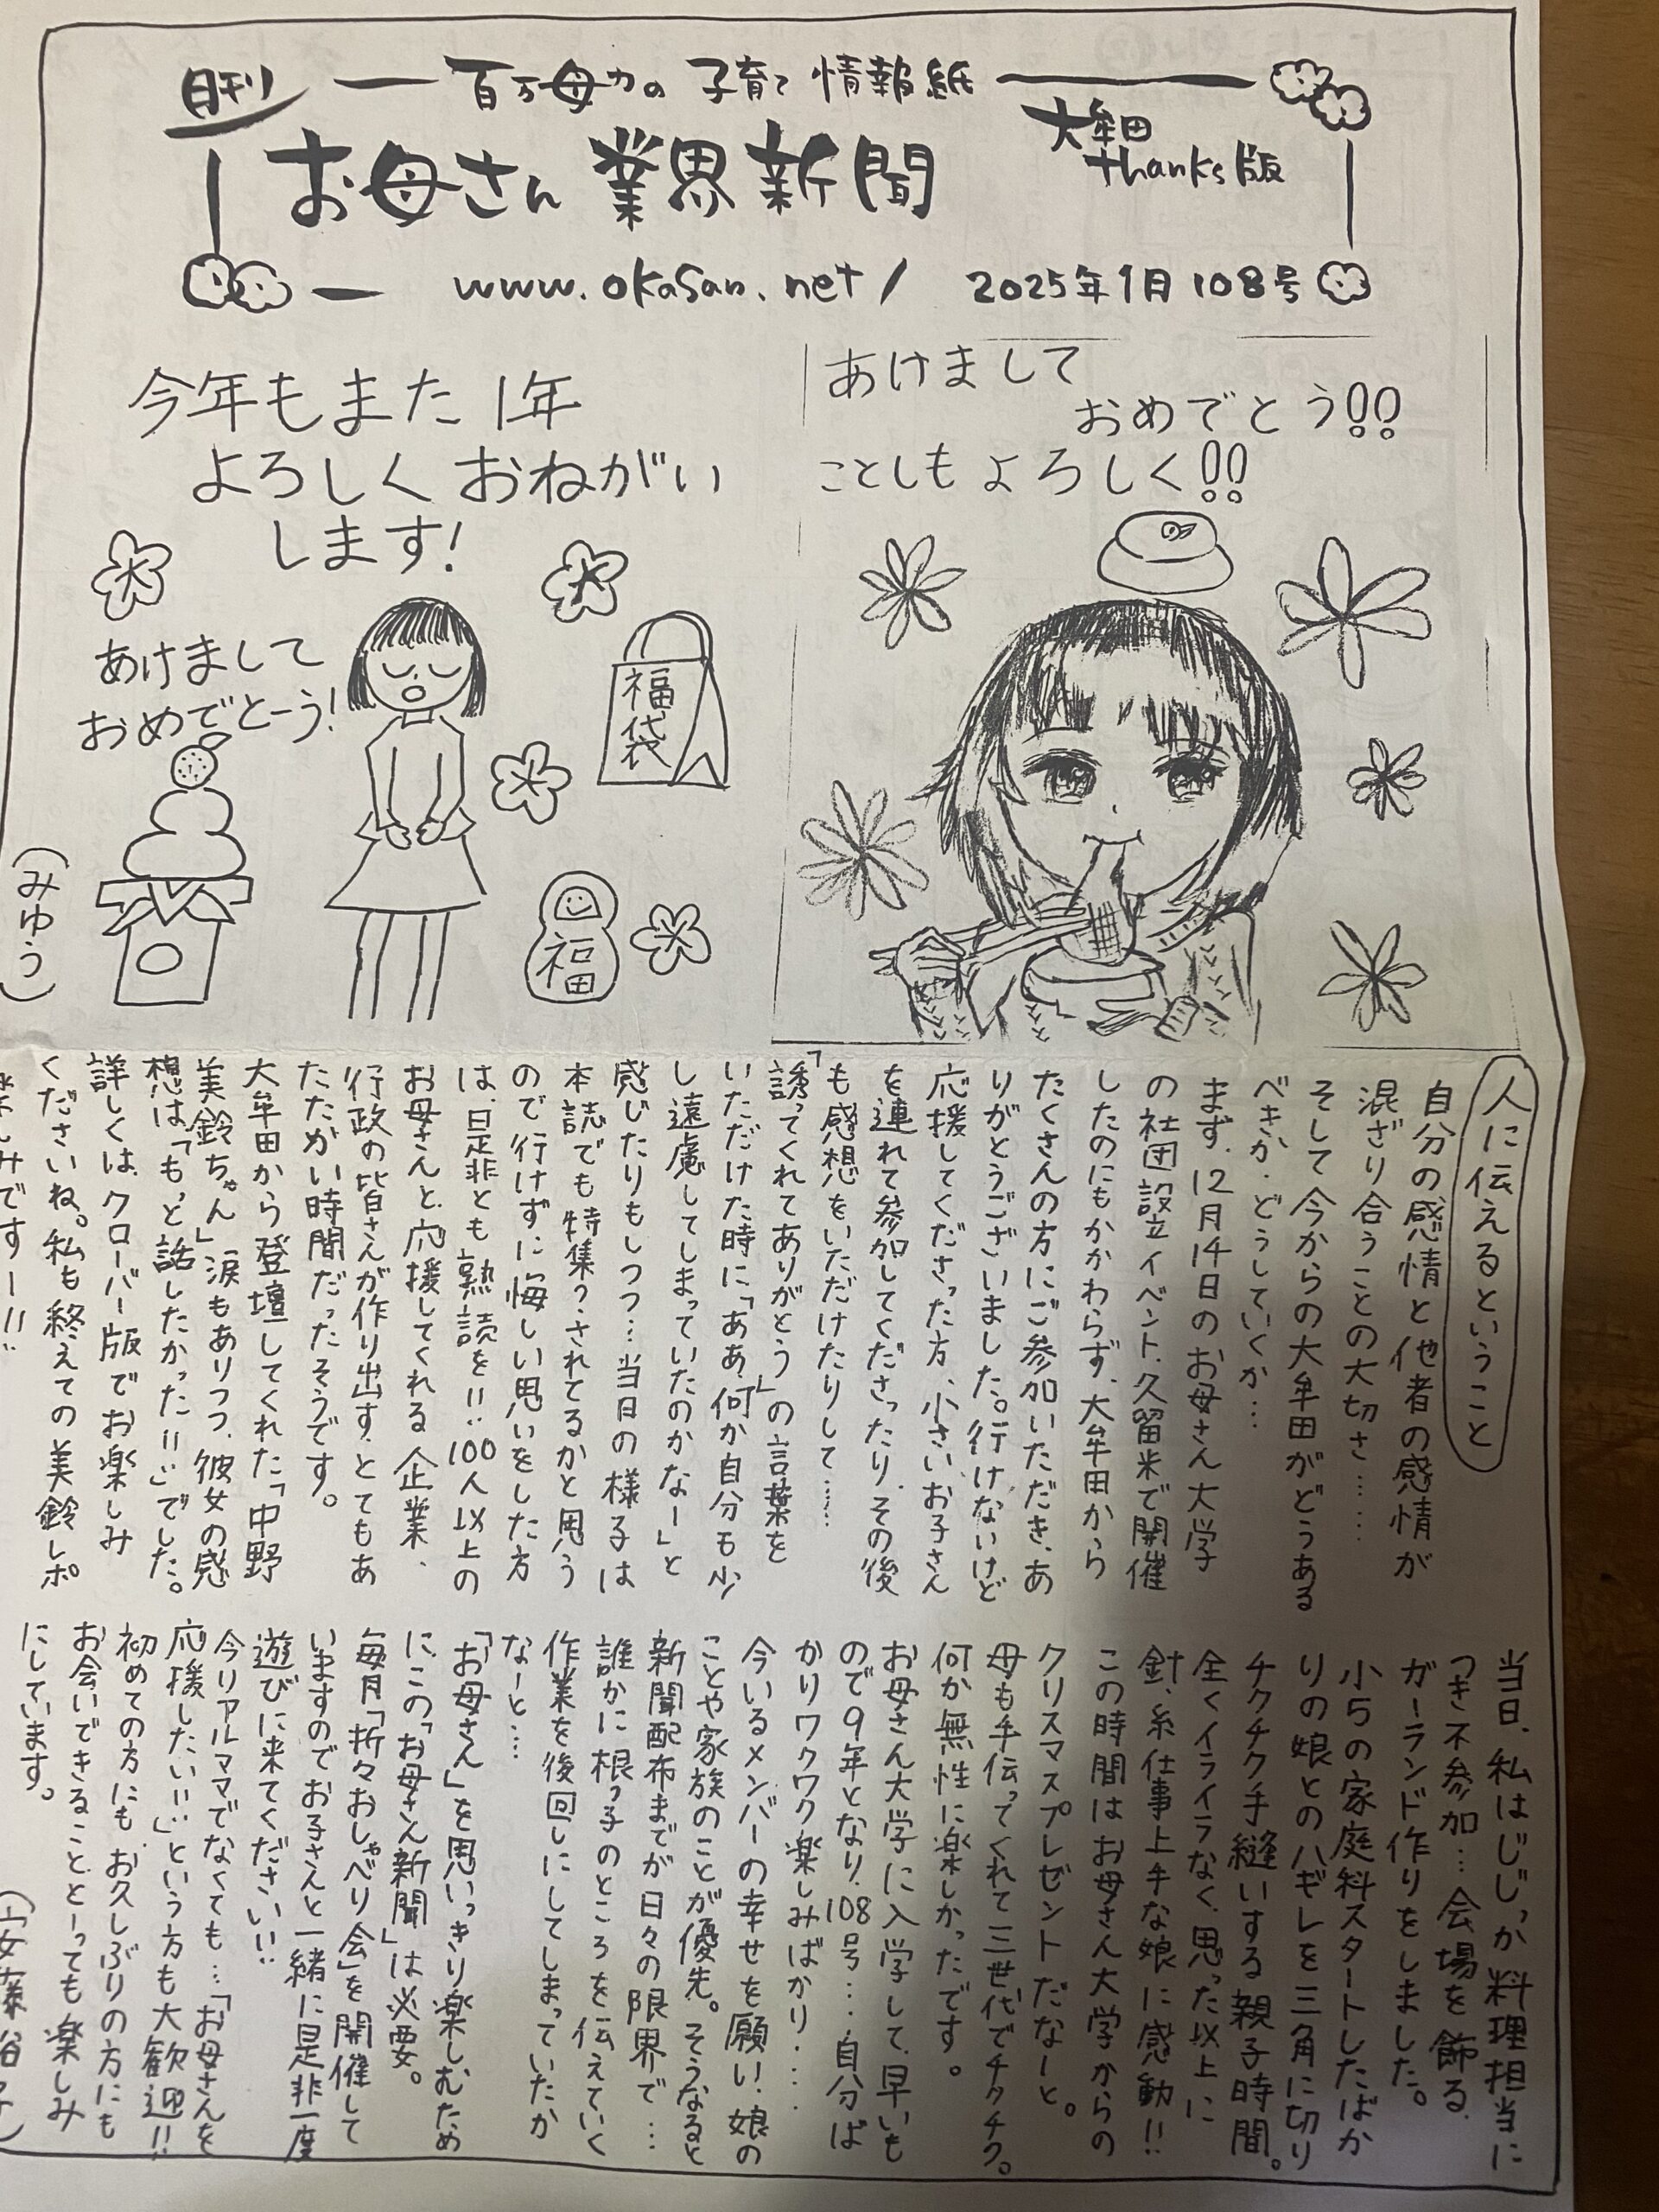 月刊
百万母力の子育て情報紙
お母さん業界新聞
大牟田
thanks版
www.okasan.net/
2025年1月108号
あけまして
おめでとう!!
ことしもよろしく!!
今年もまた1年
よろしくおねがい
します!
あけまして
おめでとーう!
福袋
福
(みゆう)
人に伝えるということ
自分の感情と他者の感情が
混ざり合うことの大切さ……
そして今からの大牟田がどうある
べきか、どうしていくか…
まず、12月14日のお母さん大学
の社団設立イベント、久留米で開催
したのにもかかわらず、大牟田から
たくさんの方にご参加いただき、あ
りがとうございました。行けないけど
応援してくださった方、小さいお子さん
を連れて参加してくださったり、その後
も感想をいただけたりして……
「誘ってくれてありがとう」の言葉を
いただけた時に「ああ、何か自分も少
し遠慮してしまっていたのかなー」と
感じたりもしつつ…当日の様子は
本誌でも特集?されてるかと思う
ので行けずに悔しい思いをした方
は、是非とも熟読を!!‥100人以上の
お母さんと、応援してくれる企業、
行政の皆さんが作り出す、とてもあ
たたかい時間だったそうです。
大牟田から登壇してくれた「中野
美鈴ちゃん」涙もありつつ、彼女の感
想は「もっと話したかった!!」でした。
詳しくは、クローバー版でお楽しみ
くださいね。私も終えての美鈴レポ
楽しみですー!!
当日、私はじじっか料理担当に
つき不参加…会場を飾る、
ガーランド作りをしました。
小5の家庭科スタートしたばか
りの娘とのハギレを三角に切り
チクチク手縫いする親子時間。
全くイライラなく、思った以上に
針、糸仕事上手な娘に感動!!
この時間はお母さん大学からの
クリスマスプレゼントだなーと。
母も手伝ってくれて三世代でチクチク。
何か無性に楽しかったです。
お母さん大学に入学して、早いも
ので9年となり、108号…自分ば
かりワクワク楽しみばかり……
今いるメンバーの幸せを願い、娘の
ことや家族のことが優先。そうなると
新聞配布までが日々の限界で…
誰かに根っ子のところを伝えていく
作業を後回しにしてしまっていたか
なーと…
「お母さん」を思いっきり楽しむため
に、この「お母さん新聞」は必要。
毎月「折々おしゃべり会」を開催して
いますのでお子さんと一緒に是非一度
遊びに来てください!!
今リアルママでなくても…「お母さんを
応援したい!!」という方も大歓迎!!
初めての方にも、お久しぶりの方にも
お会いできること、とーっても楽しみ
にしています。